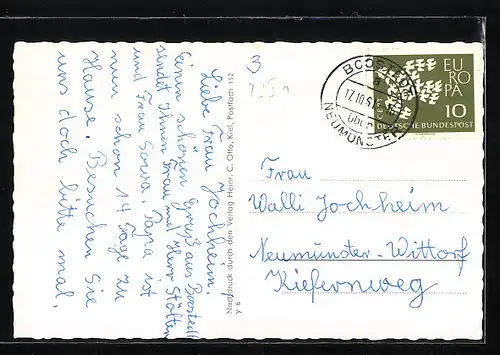 Liebe Frau Jochheim!
Einen schönen Gruß aus Boostedt
sendet Ihnen Frau und Herr Stölten
und Frau Sonia. Papa ist
nun schon 14 Tage zu
Hause. Besuchen Sie
uns doch bitte mal.
Nachdruck durch den Verlag Heinr. C. Otto, Kiel, Postfach 152
Y 6
3
BOOSTEDT
17.10.61
ÜBER
NEUMÜNSTER
EUROPA
10
DEUTSCHE BUNDESPOST
Frau
Walli Jochheim
Neumünster-Wittorf
Kiefernweg